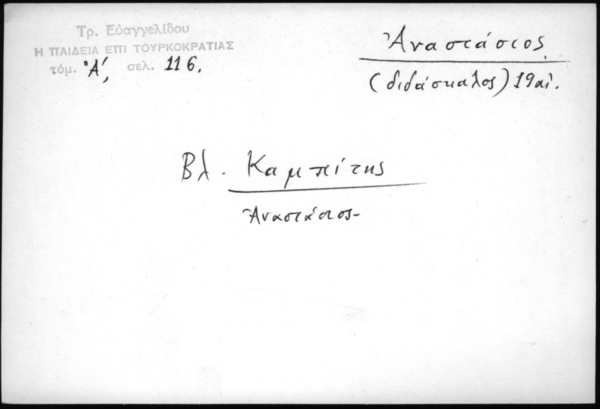 Τρ. Εὐαγγελίδου
Η ΠΑΙΔΕΙΑ ΕΠΙ ΤΟΥΡΚΟΚΡΑΤΙΑΣ
τόμ. Ἀ, σελ. 116.
Ἀναστάσιος
(διδάσκαλος) 19 αἰ.
Βλ. Καμπίτης
Ἀναστάσιος